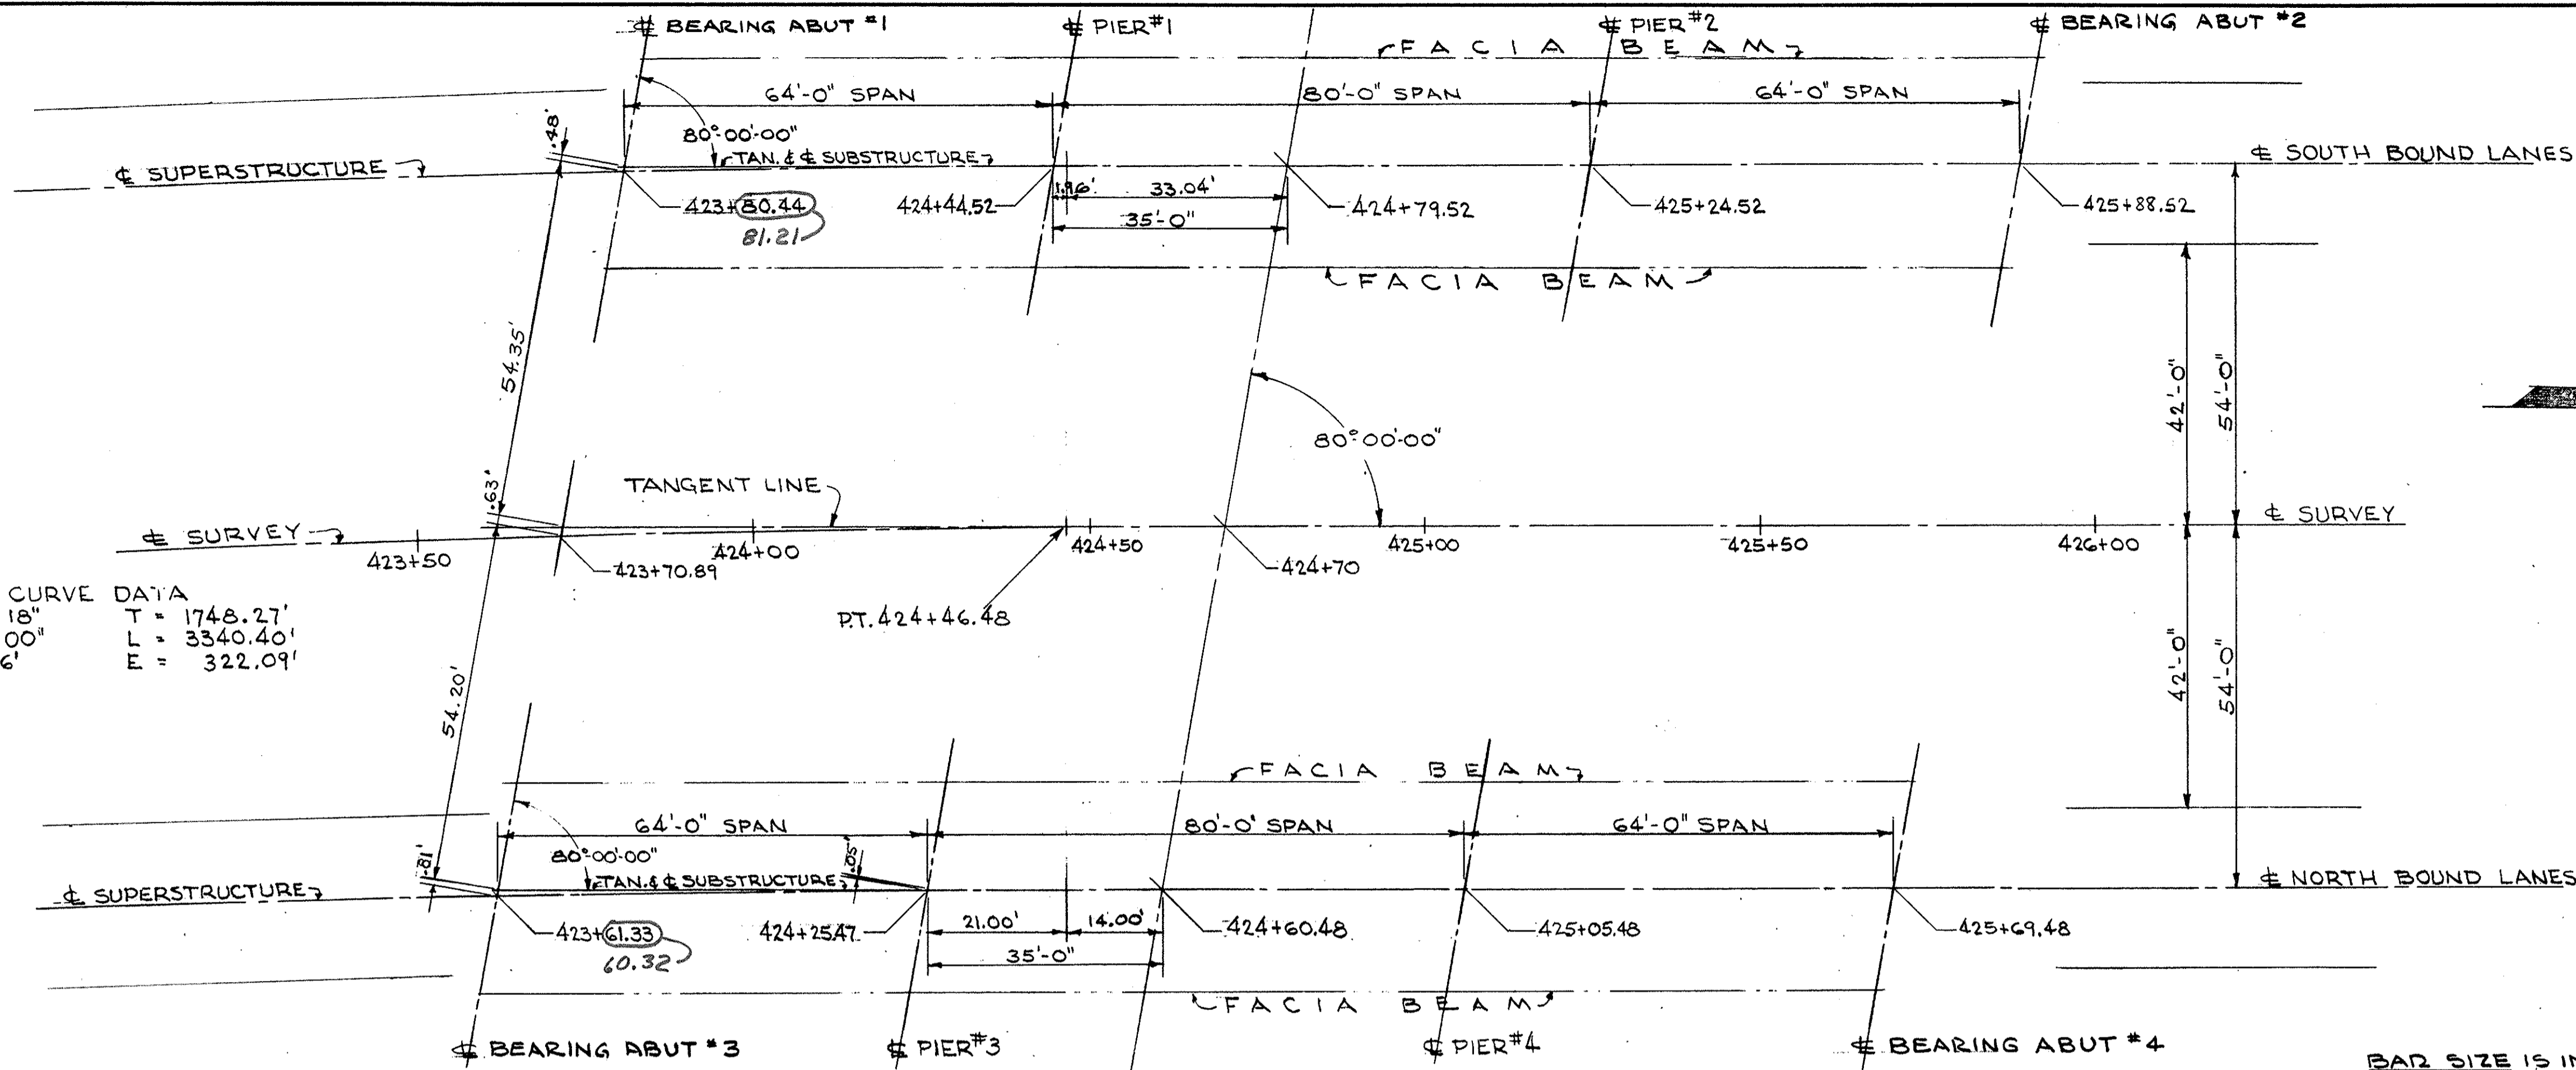 ℄ BEARING ABUT #1
℄ PIER #1
℄ PIER #2
℄ BEARING ABUT #2
FACIA BEAM
64'-0" SPAN
80'-0" SPAN
64'-0" SPAN
.48'
80°-00'-00"
℄ SUPERSTRUCTURE
TAN. & ℄ SUBSTRUCTURE
℄ SOUTH BOUND LANES
423+80.44
81.21
424+44.52
1.96'
33.04'
35'-0"
424+79.52
425+24.52
425+88.52
FACIA BEAM
54.35'
42'-0"
54'-0"
80°-00'-00"
.63'
TANGENT LINE
℄ SURVEY
℄ SURVEY
423+50
423+70.89
424+00
424+50
424+70
425+00
425+50
426+00
P.T. 424+46.48
CURVE DATA
18" T = 1748.27'
00" L = 3340.40'
6' E = 322.09'
54.20'
42'-0"
54'-0"
FACIA BEAM
64'-0" SPAN
80'-0" SPAN
64'-0" SPAN
.81'
80°-00'-00"
.05'
℄ SUPERSTRUCTURE
TAN. & ℄ SUBSTRUCTURE
℄ NORTH BOUND LANES
423+61.33
60.32
424+25.47
21.00'
14.00'
35'-0"
424+60.48
425+05.48
425+69.48
FACIA BEAM
℄ BEARING ABUT #3
℄ PIER #3
℄ PIER #4
℄ BEARING ABUT #4
BAR SIZE IS IN